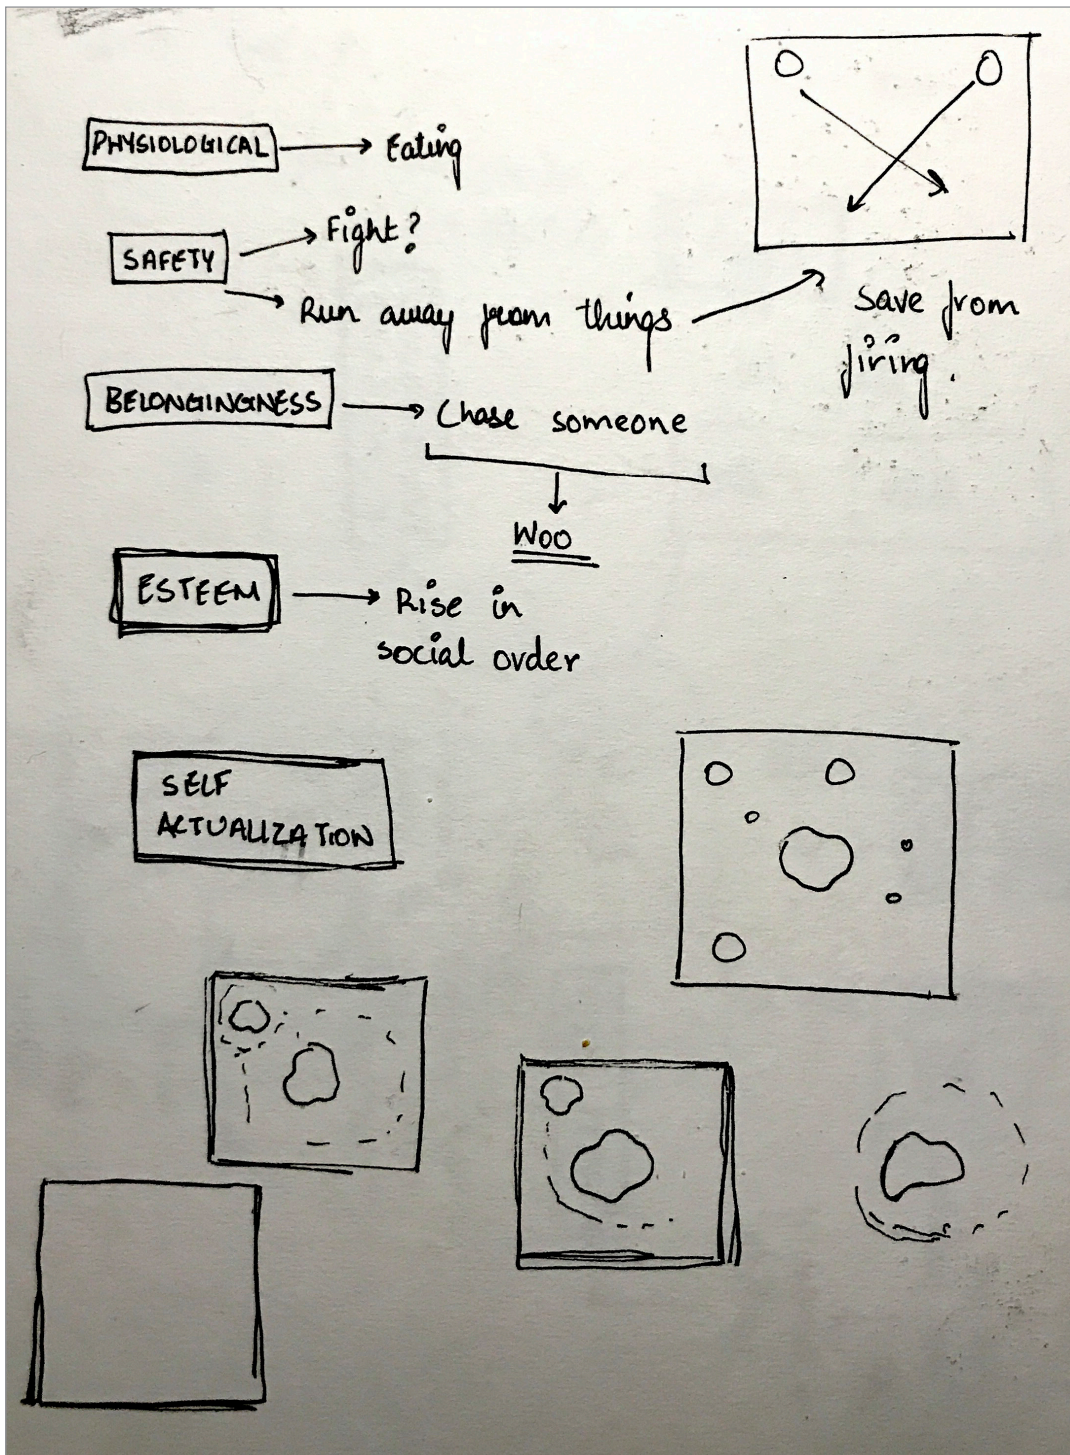 PHYSIOLOGICAL Eating
SAFETY Fight?
Run away from things
Save from
firing.
BELONGINGNESS Chase someone
Woo
ESTEEM Rise in
social order
SELF
ACTUALIZATION